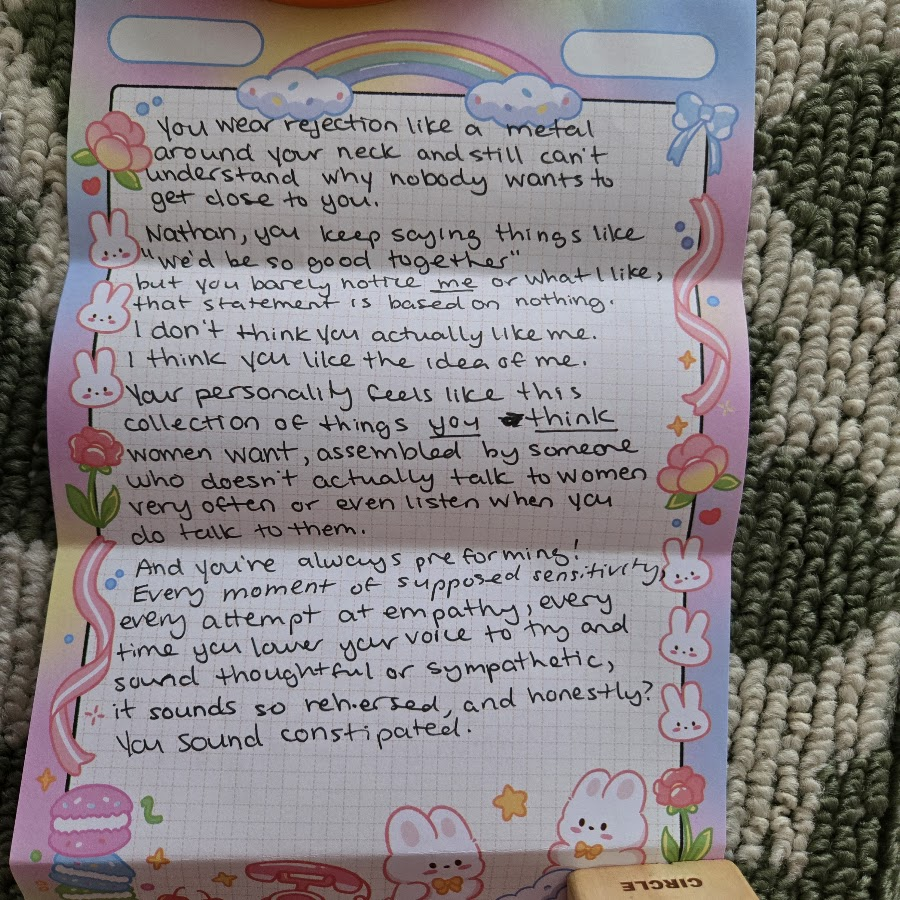 You wear rejection like a metal
around your neck and still can't
understand why nobody wants to
get close to you.
Nathan, you keep saying things like
"we'd be so good together"
but you barely notice me or what I like,
that statement is based on nothing.
I don't think you actually like me.
I think you like the idea of me.
Your personality feels like this
collection of things you think
women want, assembled by someone
who doesn't actually talk to women
very often or even listen when you
do talk to them.
And you're always preforming!
Every moment of supposed sensitivity,
every attempt at empathy, every
time you lower your voice to try and
sound thoughtful or sympathetic,
it sounds so rehersed, and honestly?
You sound constipated.
CIRCLE